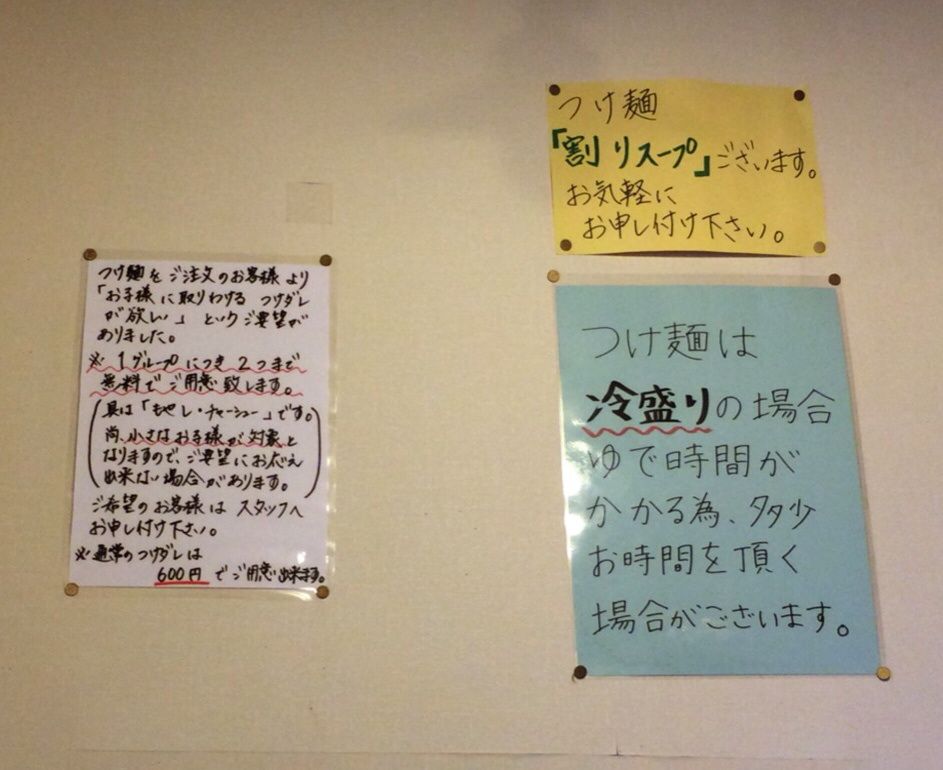 つけ麺
「割りスープ」ございます。
お気軽に
お申し付け下さい。
つけ麺は
冷盛りの場合
ゆで時間が
かかる為、多少
お時間を頂く
場合がございます。
つけ麺をご注文のお客様より
「お子様に取りわける つけダレ
が欲しい」というご要望が
ありました。
※1グループにつき2つまで
無料でご用意致します。
(具は「もやし・チャーシュー」です。
尚、小さなお子様が対象と
なりますので、ご要望にお応え
出来ない場合があります。)
ご希望のお客様は スタッフへ
お申し付け下さい。
※通常のつけダレは
600円でご用意出来ます。